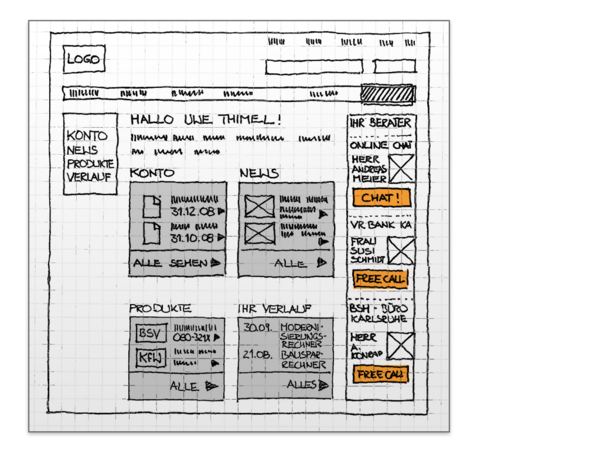 LOGO
HALLO UWE THIMEL!
KONTO
NEWS
PRODUKTE
VERLAUF
KONTO
31.12.08
31.10.08
ALLE SEHEN
NEWS
ALLE
PRODUKTE
BSV
080-321X
KfW
ALLE
IHR VERLAUF
30.09. MODERNI-
SIERUNGS-
RECHNER
21.08. BAUSPAR-
RECHNER
ALLES
IHR BERATER
ONLINE CHAT
HERR
ANDREAS
MEIER
CHAT!
VR BANK KA
FRAU
SUSI
SCHMIDT
FREE CALL
BSH - BÜRO
KARLSRUHE
HERR
A.
KONRAD
FREE CALL